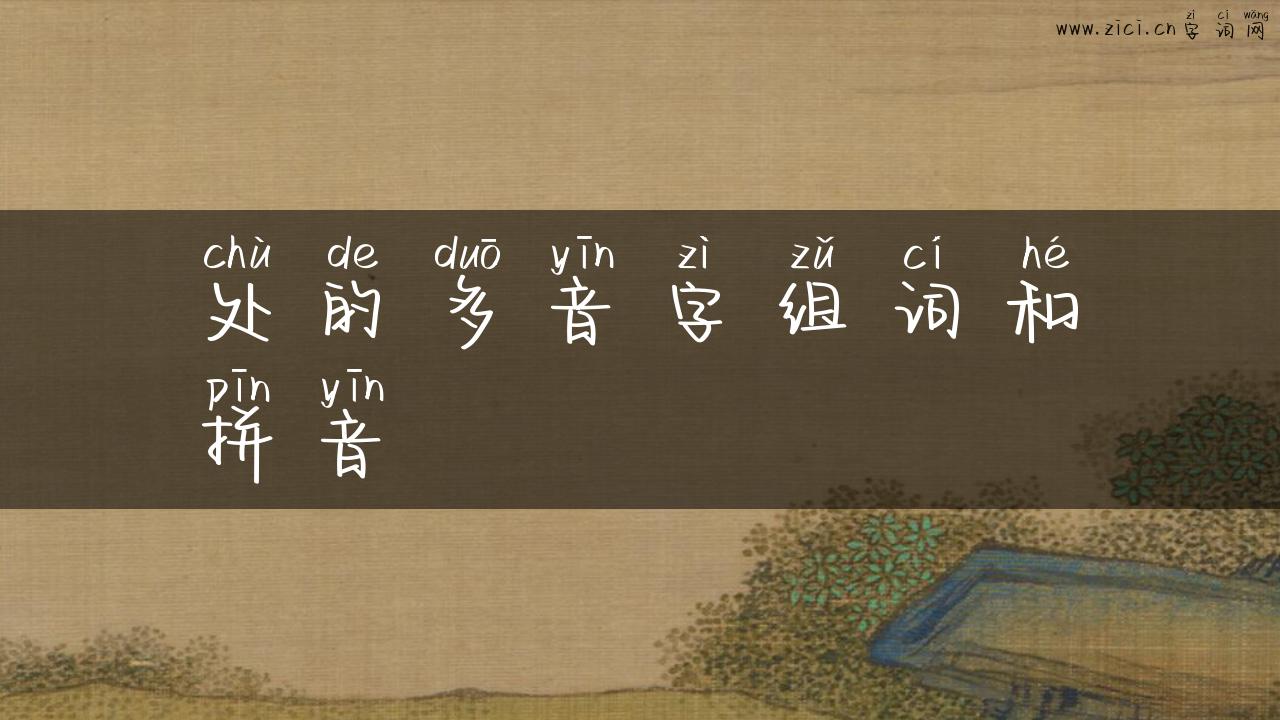 zì cí wǎng
www.zici.cn 字词网
chù de duō yīn zì zǔ cí hé
处的多音字组词和
pīn yīn
拼音